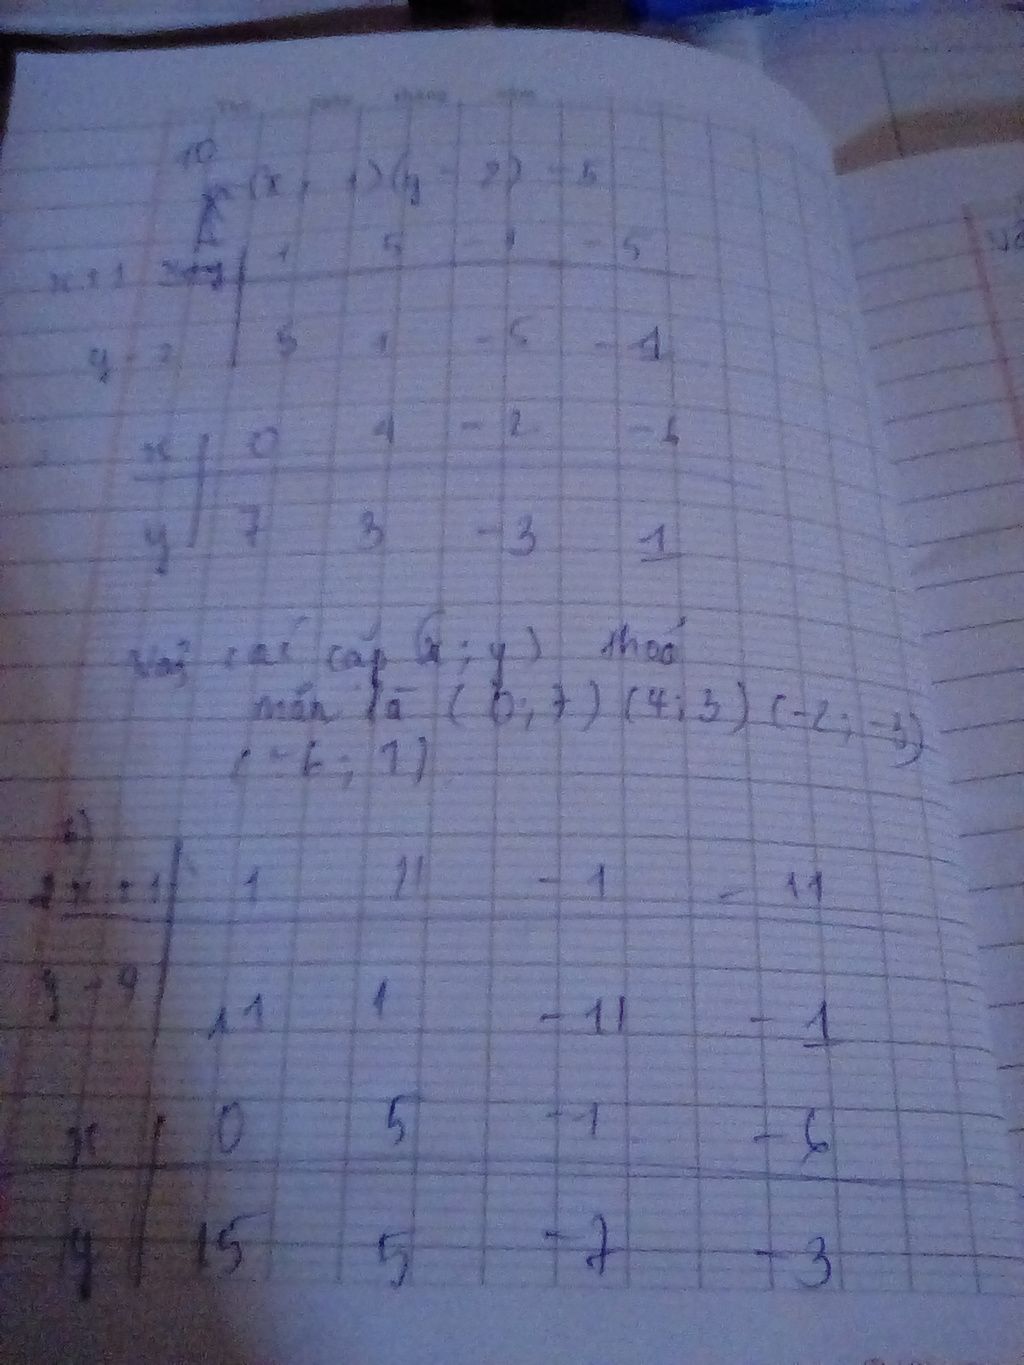 10
(x + 1)(y - 2) = 5
x + 1 | 1 5 - 1 - 5
y - 2 | 5 1 - 5 - 1
x | 0 4 - 2 - 6
y | 7 3 - 3 1
các cặp (x ; y) thoả
mãn là (0 ; 7) (4 ; 3) (-2 ; -3)
(-6 ; 1)
2x + 1 | 1 11 - 1 - 11
y - 4 | 11 1 - 11 - 1
x | 0 5 - 1 - 6
y | 15 5 - 7 - 3